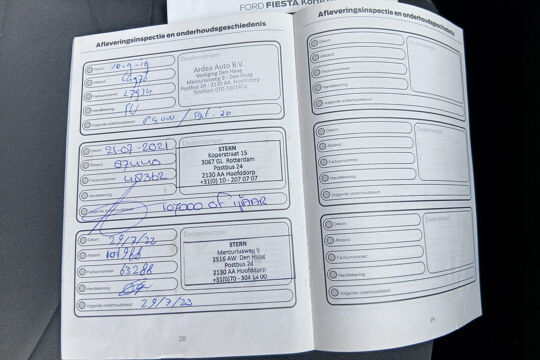 FORD FIESTA
Afleveringsinspectie en onderhoudsgeschiedenis
Datum:
Afstand:
Factuurnummer:
27934
Handtekening:
Volgende onderhoudsbeurt:
Dealerstempel
Ardea Auto B.V.
Vestiging Den Haag
Mercuriusweg 9 - Den Haag
Postbus 24 - 2130 AA Hoofddorp
Telefoon
Datum: 21-07-2021
Afstand: 87440
Factuurnummer:
Handtekening:
107000 of jaar
STERN
Koperstraat 15
3067 GL Rotterdam
Postbus 24
2130 AA Hoofddorp
+31(0) 10 - 207 07 07
Datum: 29/7/22
Afstand: 101988
Factuurnummer: 63288
Handtekening:
Volgende onderhoudsbeurt: 29/7/23
Dealerstempel
STERN
Mercuriusweg 9
2516 AW Den Haag
Postbus 24
2130 AA Hoofddorp
+31(0)70 - 304 14 00
28
Afleveringsinspectie en onderhoudsgeschiedenis
Datum:
Afstand:
Factuurnummer:
Handtekening:
Volgende onderhoudsbeurt:
Dealerstempel
Datum:
Afstand:
Factuurnummer:
Handtekening:
Volgende onderhoudsbeurt:
Dealerstempel
Datum:
Afstand:
Factuurnummer:
Handtekening:
Volgende onderhoudsbeurt:
Dealerstempel
29